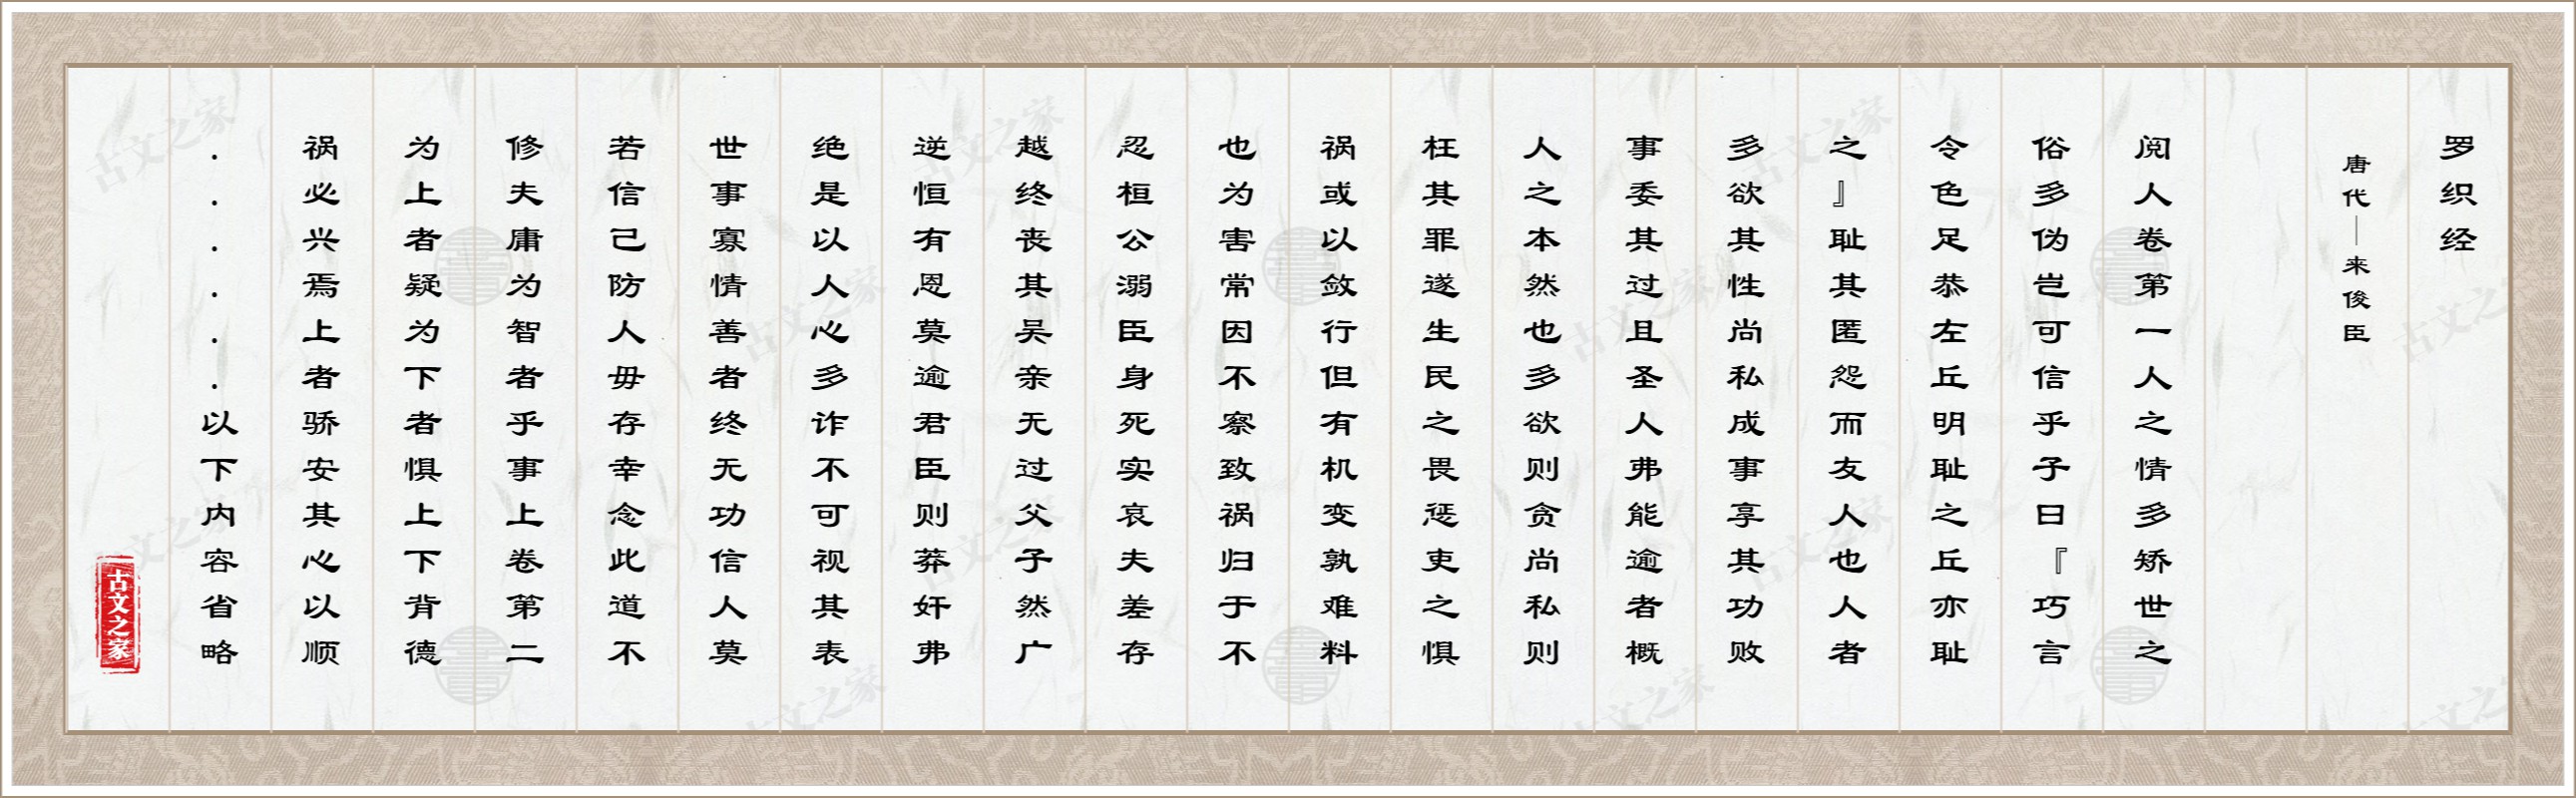 罗织经
唐代—来俊臣
阅人卷第一人之情多矫世之
俗多伪岂可信乎子曰『巧言
令色足恭左丘明耻之丘亦耻
之』耻其匿怨而友人也人者
多欲其性尚私成事享其功败
事委其过且圣人弗能逾者概
人之本然也多欲则贪尚私则
枉其罪遂生民之畏惩吏之惧
祸或以敛行但有机变孰难料
也为害常因不察致祸归于不
忍桓公溺臣身死实哀夫差存
越终丧其吴亲无过父子然广
逆恒有恩莫逾君臣则莽奸弗
绝是以人心多诈不可视其表
世事寡情善者终无功信人莫
若信己防人毋存幸念此道不
修夫庸为智者乎事上卷第二
为上者疑为下者惧上下背德
祸必兴焉上者骄安其心以顺
......以下内容省略
古文之家
古文之家